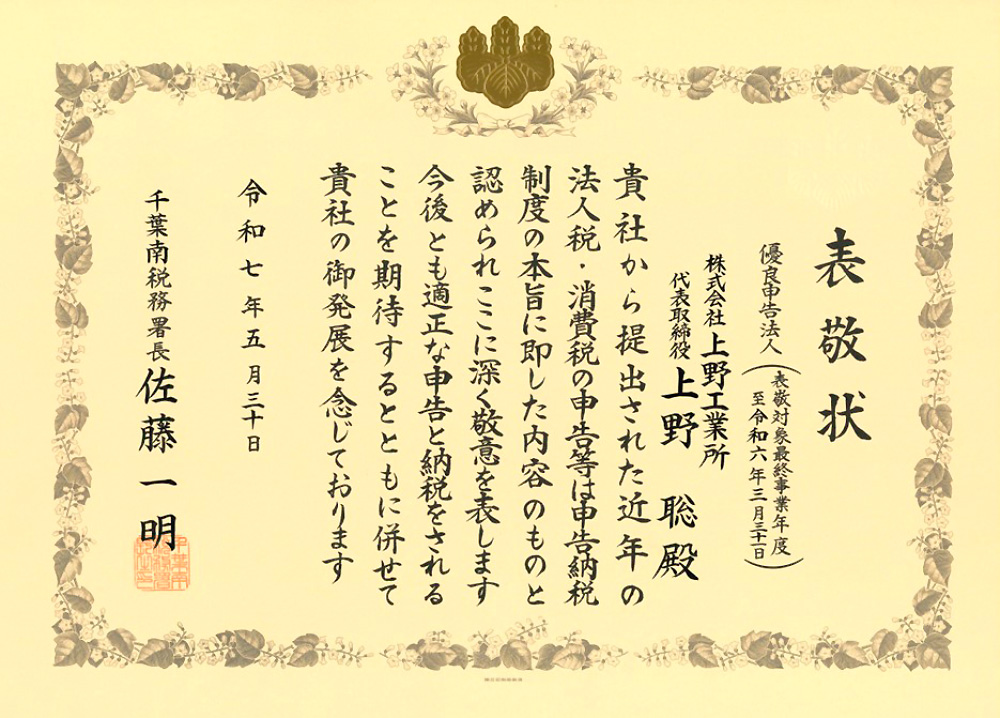 表敬状
優良申告法人
（表敬対象最終事業年度
至令和六年三月三十一日）
株式会社 上野工業所
代表取締役 上野 聡 殿
貴社から提出された近年の
法人税・消費税の申告等は申告納税
制度の本旨に即した内容のものと
認められここに深く敬意を表します
今後とも適正な申告と納税をされる
ことを期待するとともに併せて
貴社の御発展を念じております
令和七年五月三十日
千葉南税務署長 佐藤一明